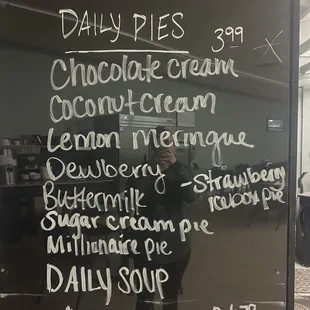 DAILY PIES
3.99
Chocolate cream
Coconut cream
Lemon meringue
Dewberry
Buttermilk
-Strawberry
Icebox pie
Sugar cream pie
Millinaire pie
DAILY SOUP